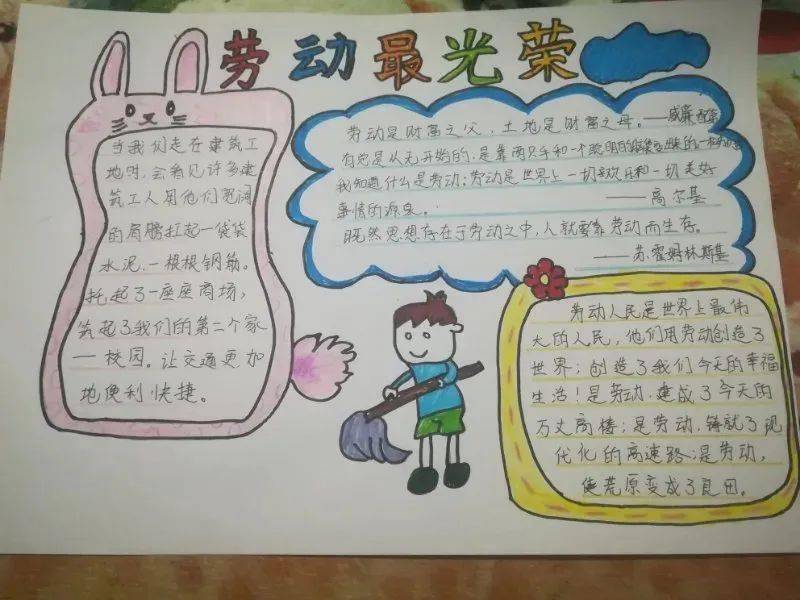 劳动最光荣
当我们走在建筑工
地时,会看见许多建
筑工人用他们宽阔
的肩膀扛起一袋袋
水泥,一根根钢筋。
托起了一座座商场,
筑起了我们的第二个家
—校园。让交通更加
地便利快捷。
劳动是财富之父,土地是财富之母。——威廉配第
有总是从无开始的,是靠两只手和一个聪明的
我知道什么是劳动:劳动是世界上一切欢乐和一切美好
事情的源泉。 ——高尔基
既然思想存在于劳动之中,人就要靠劳动而生存。
——苏霍姆林斯基
劳动人民是世界上最伟
大的人民,他们用劳动创造了
世界;创造了我们今天的幸福
生活!是劳动,建成了今天的
万丈高楼;是劳动,铸就了现
代化的高速路;是劳动,
使荒原变成了良田。